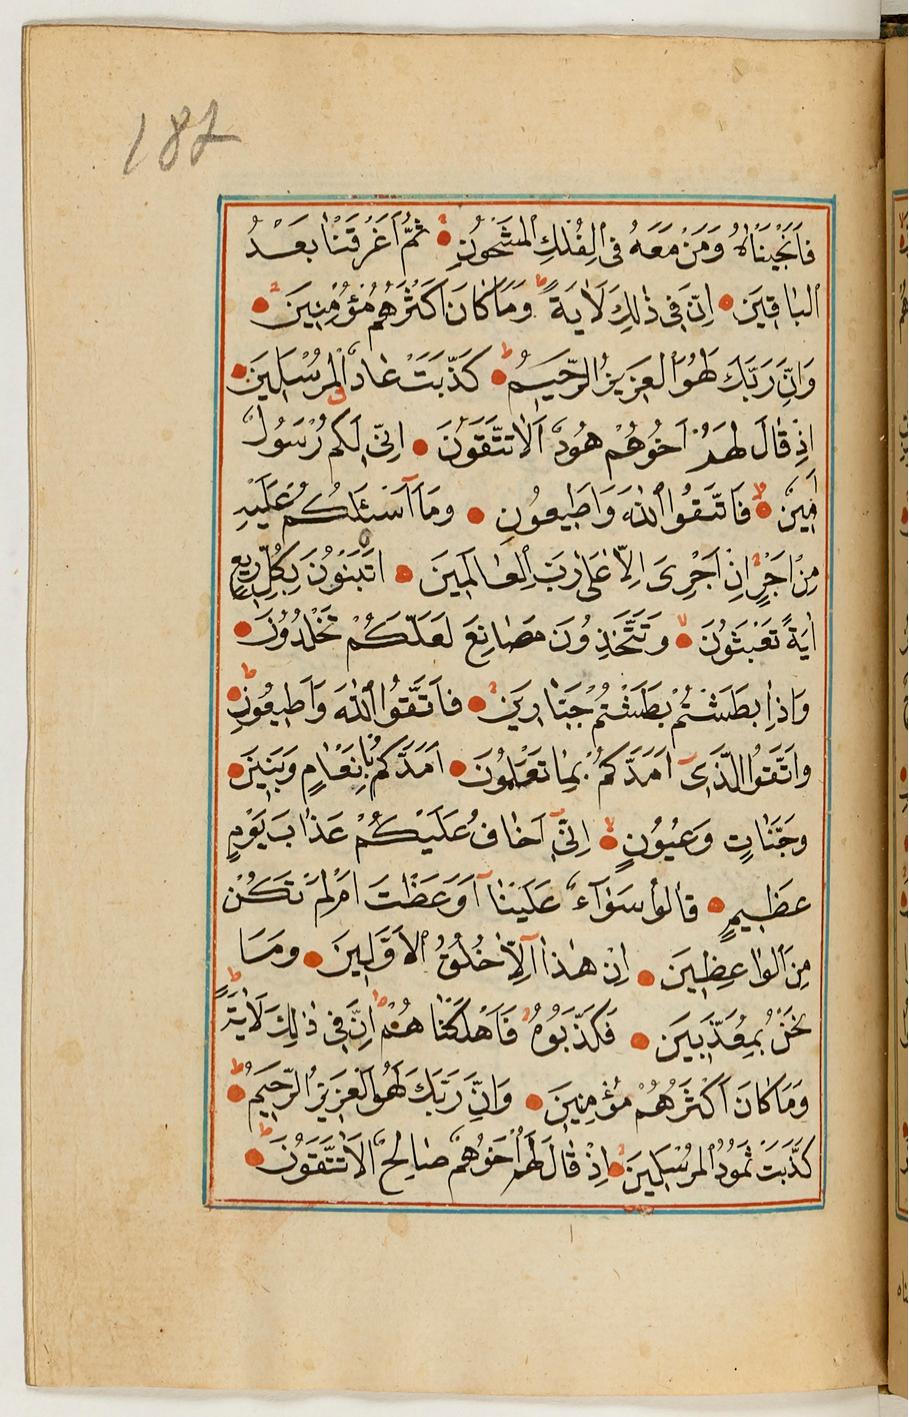 182
فَاَنْجَيْنَاهُ وَمَنْ مَعَهُ فِى الْفُلْكِ الْمَشْحُونِ ثُمَّ اَغْرَقْنَا بَعْدُ
الْبَاقِينَ اِنَّ فِى ذٰلِكَ لَاٰيَةً وَمَا كَانَ اَكْثَرُهُمْ مُؤْمِنِينَ
وَاِنَّ رَبَّكَ لَهُوَ الْعَزِيزُ الرَّحِيمُ كَذَّبَتْ عَادٌ الْمُرْسَلِينَ
اِذْ قَالَ لَهُمْ اَخُوهُمْ هُودٌ اَلَا تَتَّقُونَ اِنِّى لَكُمْ رَسُولٌ
اَمِينٌ فَاتَّقُوا اللّٰهَ وَاَطِيعُونِ وَمَٓا اَسْـَٔلُكُمْ عَلَيْهِ
مِنْ اَجْرٍ اِنْ اَجْرِىَ اِلَّا عَلٰى رَبِّ الْعَالَمِينَ اَتَبْنُونَ بِكُلِّ رِيعٍ
اٰيَةً تَعْبَثُونَ وَتَتَّخِذُونَ مَصَانِعَ لَعَلَّكُمْ تَخْلُدُونَ
وَاِذَا بَطَشْتُمْ بَطَشْتُمْ جَبَّارِينَ فَاتَّقُوا اللّٰهَ وَاَطِيعُونِ
وَاتَّقُوا الَّذِٓى اَمَدَّكُمْ بِمَا تَعْلَمُونَ اَمَدَّكُمْ بِاَنْعَامٍ وَبَنِينَ
وَجَنَّاتٍ وَعُيُونٍ اِنِّٓى اَخَافُ عَلَيْكُمْ عَذَابَ يَوْمٍ
عَظِيمٍ قَالُوا سَوَٓاءٌ عَلَيْنَٓا اَوَعَظْتَ اَمْ لَمْ تَكُنْ
مِنَ الْوَاعِظِينَ اِنْ هٰذَٓا اِلَّا خُلُقُ الْاَوَّلِينَ وَمَا
نَحْنُ بِمُعَذَّبِينَ فَكَذَّبُوهُ فَاَهْلَكْنَاهُمْ اِنَّ فِى ذٰلِكَ لَاٰيَةً
وَمَا كَانَ اَكْثَرُهُمْ مُؤْمِنِينَ وَاِنَّ رَبَّكَ لَهُوَ الْعَزِيزُ الرَّحِيمُ
كَذَّبَتْ ثَمُودُ الْمُرْسَلِينَ اِذْ قَالَ لَهُمْ اَخُوهُمْ صَالِحٌ اَلَا تَتَّقُونَ